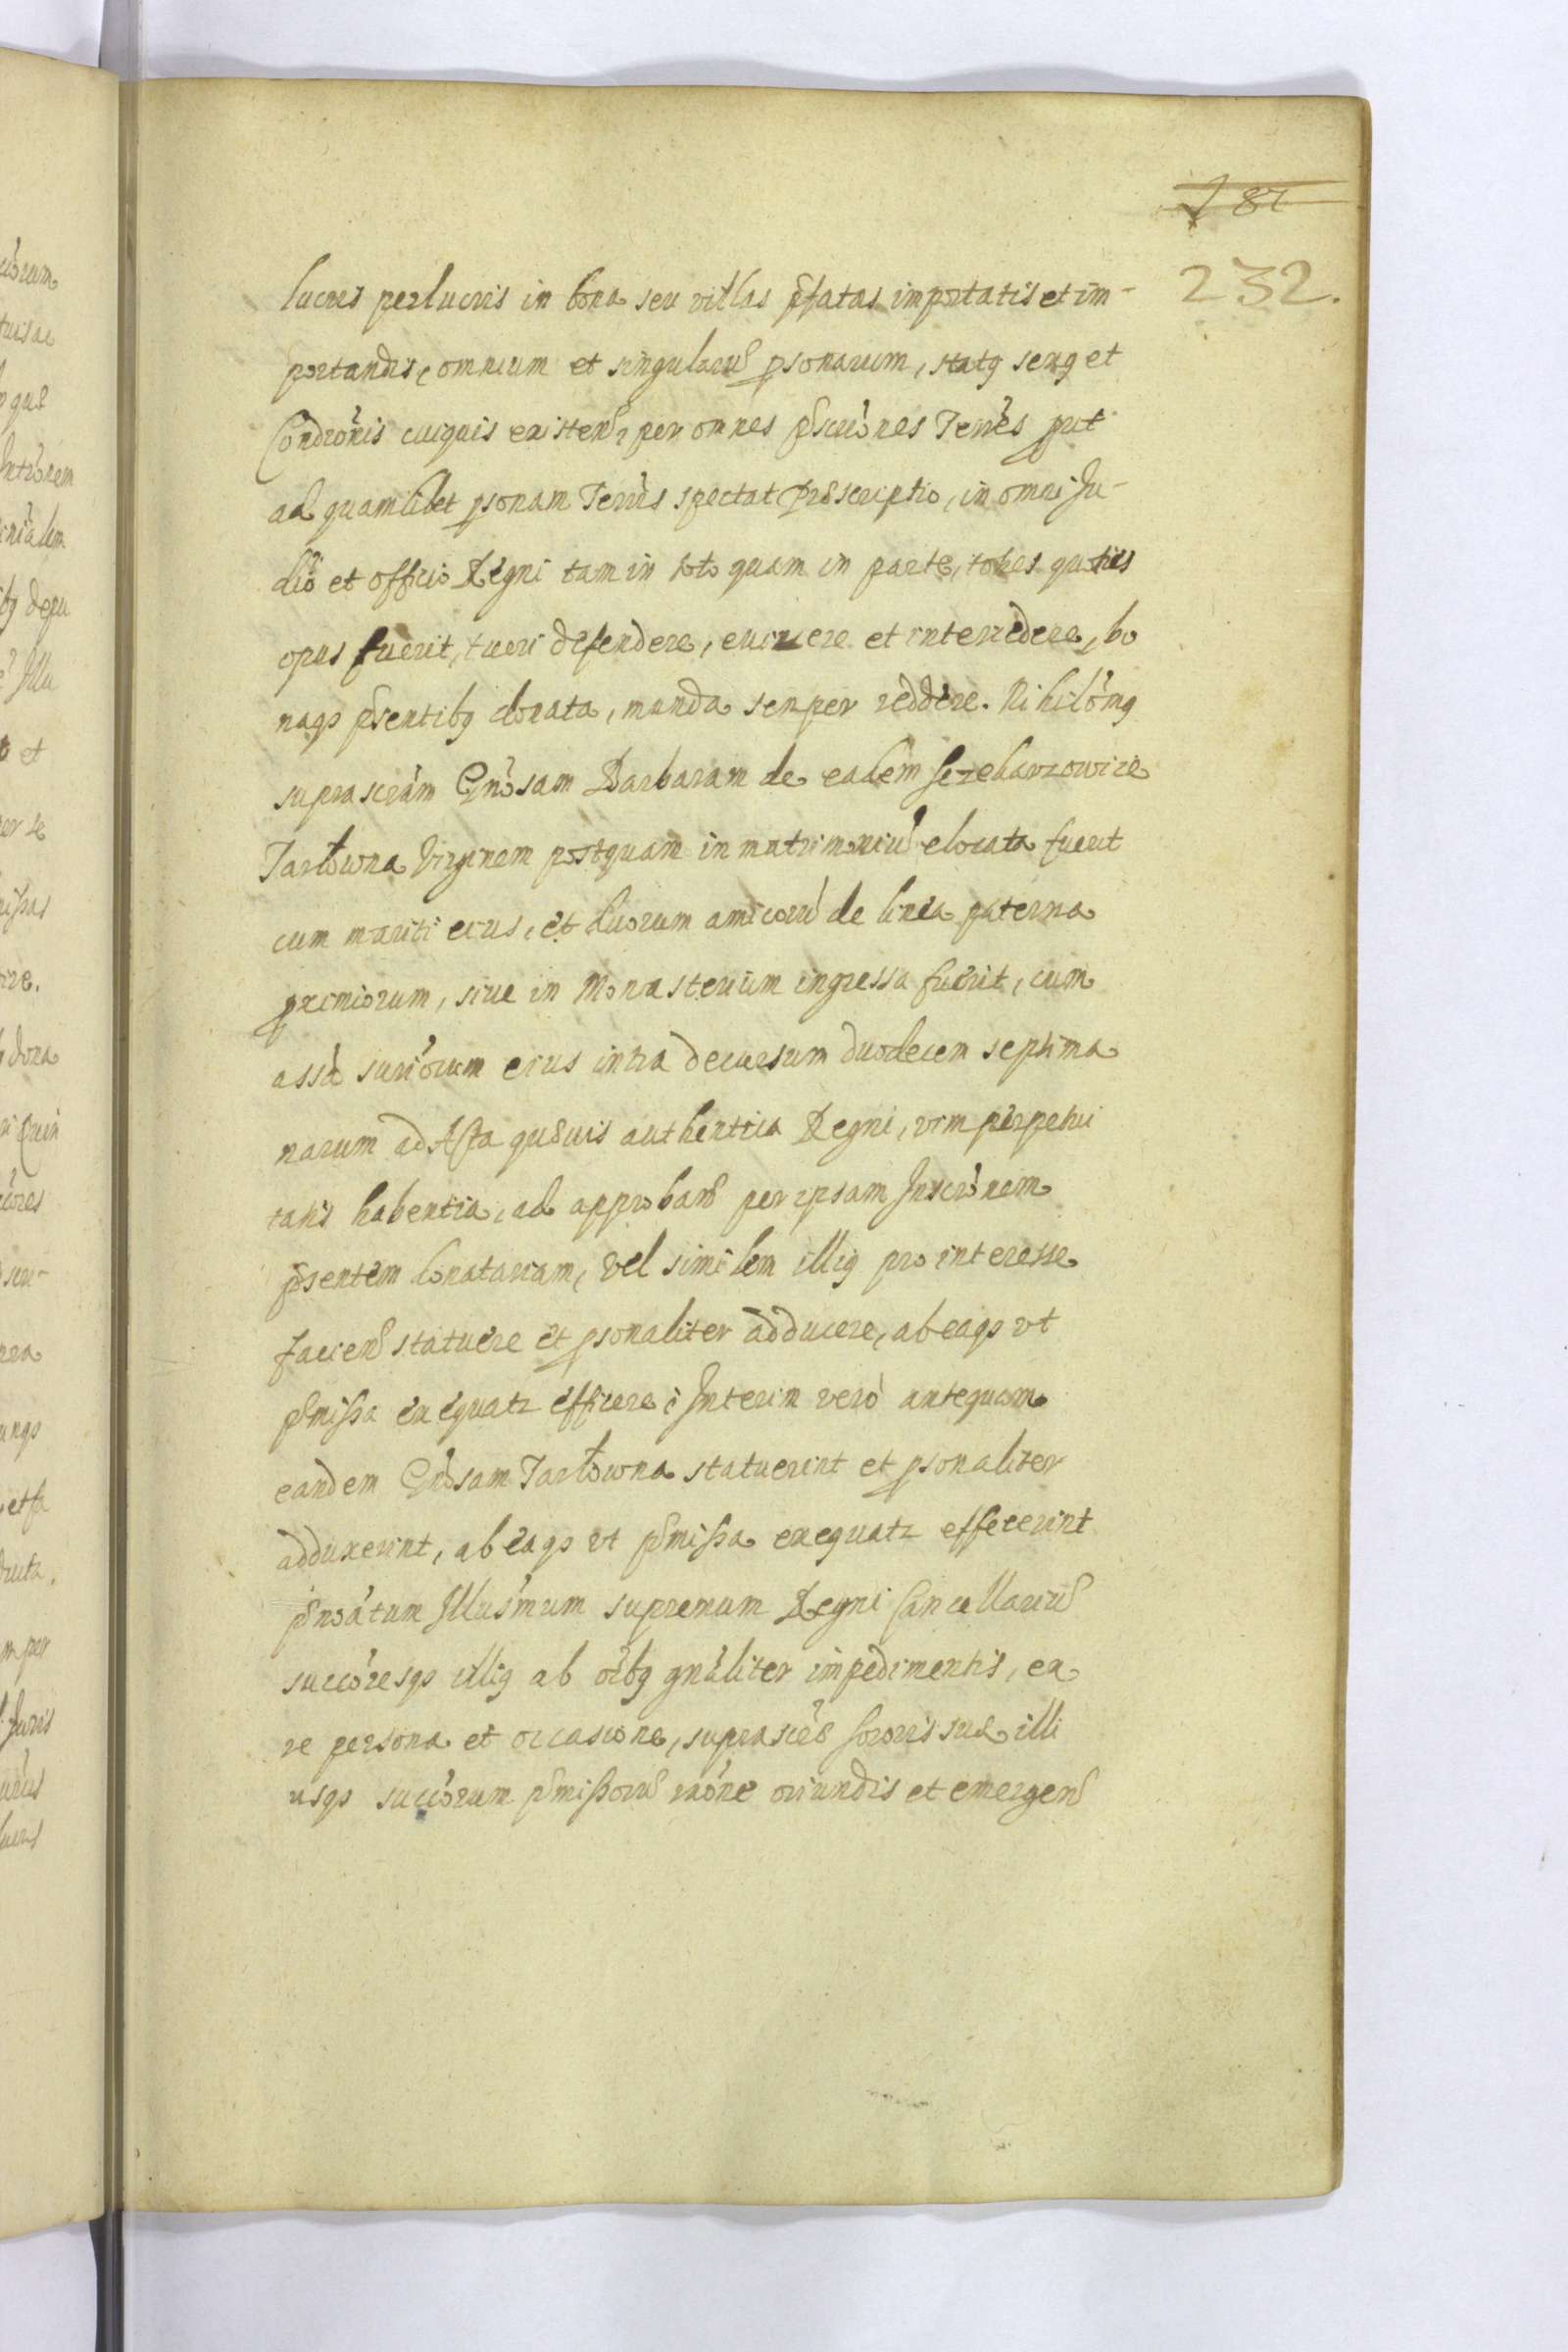 187
232.
lucris perlucris in bona seu villas pfatas importatis et im-
portandis, omnium et singularu psonarum, statq sexq et
Condronis cuiquis existen, per omnes pscriones Terres put
ad quamlibet psonam Terris spectat Proscriptio, in omni Ju-
dio et officio Regni tam in toto quam in parte, toties quoties
opus fuerit, tueri defendere, evincere et intercedere, bo
naqs psentibq donata, munda semper reddere. Nihilomq
suprascram Gnosam Barbaram de eadem Szczekarzowice
Tarłowna Virginem postquam in matrimoniu elocata fuerit
cum mariti eius, et duorum amicoru de linea paterna
pximiorum, sive in Monasterium ingressa fuerit, cum
assa suriorum eius intra decursum duodecem septima
narum ad Acta quævis authentica Regni, vim perpetui
tatis habentia, ad approband per ipsam Inscronem
psentem donatariam, vel similem illiq pro interesse
faciend statuere et psonaliter adducere, ab eaqs vt
pmissa exequatr efficere; Interim vero antequam
eandem Gnosam Tarłowna statuerint et psonaliter
adduxerint, ab eaqs vt pmissa exequatr effecerint
pnoatum Illusmum supremum Regni Cancellariu
succoresqs illiq ab oibq gnaliter impedimentis, ex
re persona et occasione, suprascræ sororis suæ illi
usqs succorum pmissoru raone oriundis et emergen